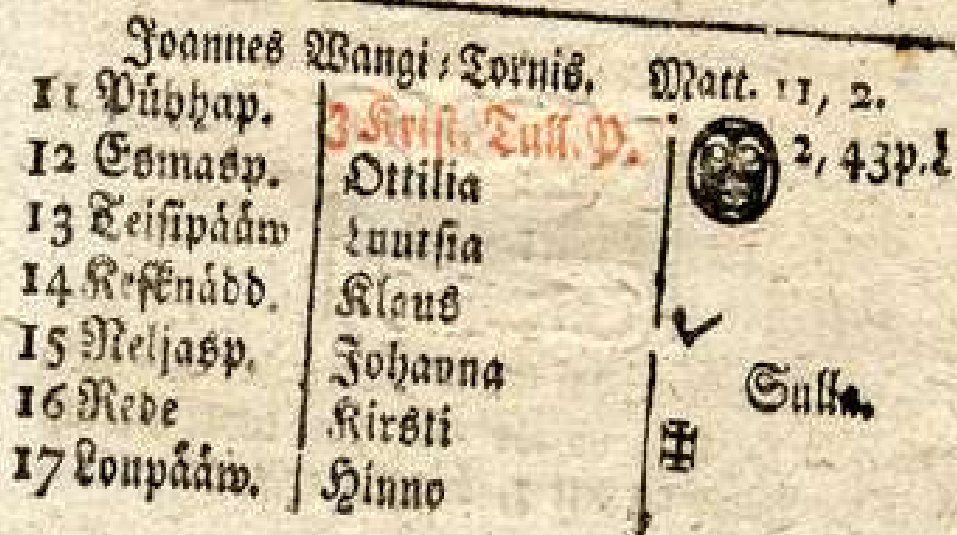 Joannes Wangi-Tornis. Matt. 11, 2.
11 Pühhap. 3 Krist. Tull. P. 2, 43 p. L
12 Esmasp. Ottilia
13 Teisipääw Luutsia
14 Kesknädd. Klaus
15 Neljasp. Johanna
16 Rede Kirsti Sulla.
17 Loupääw. Hinno